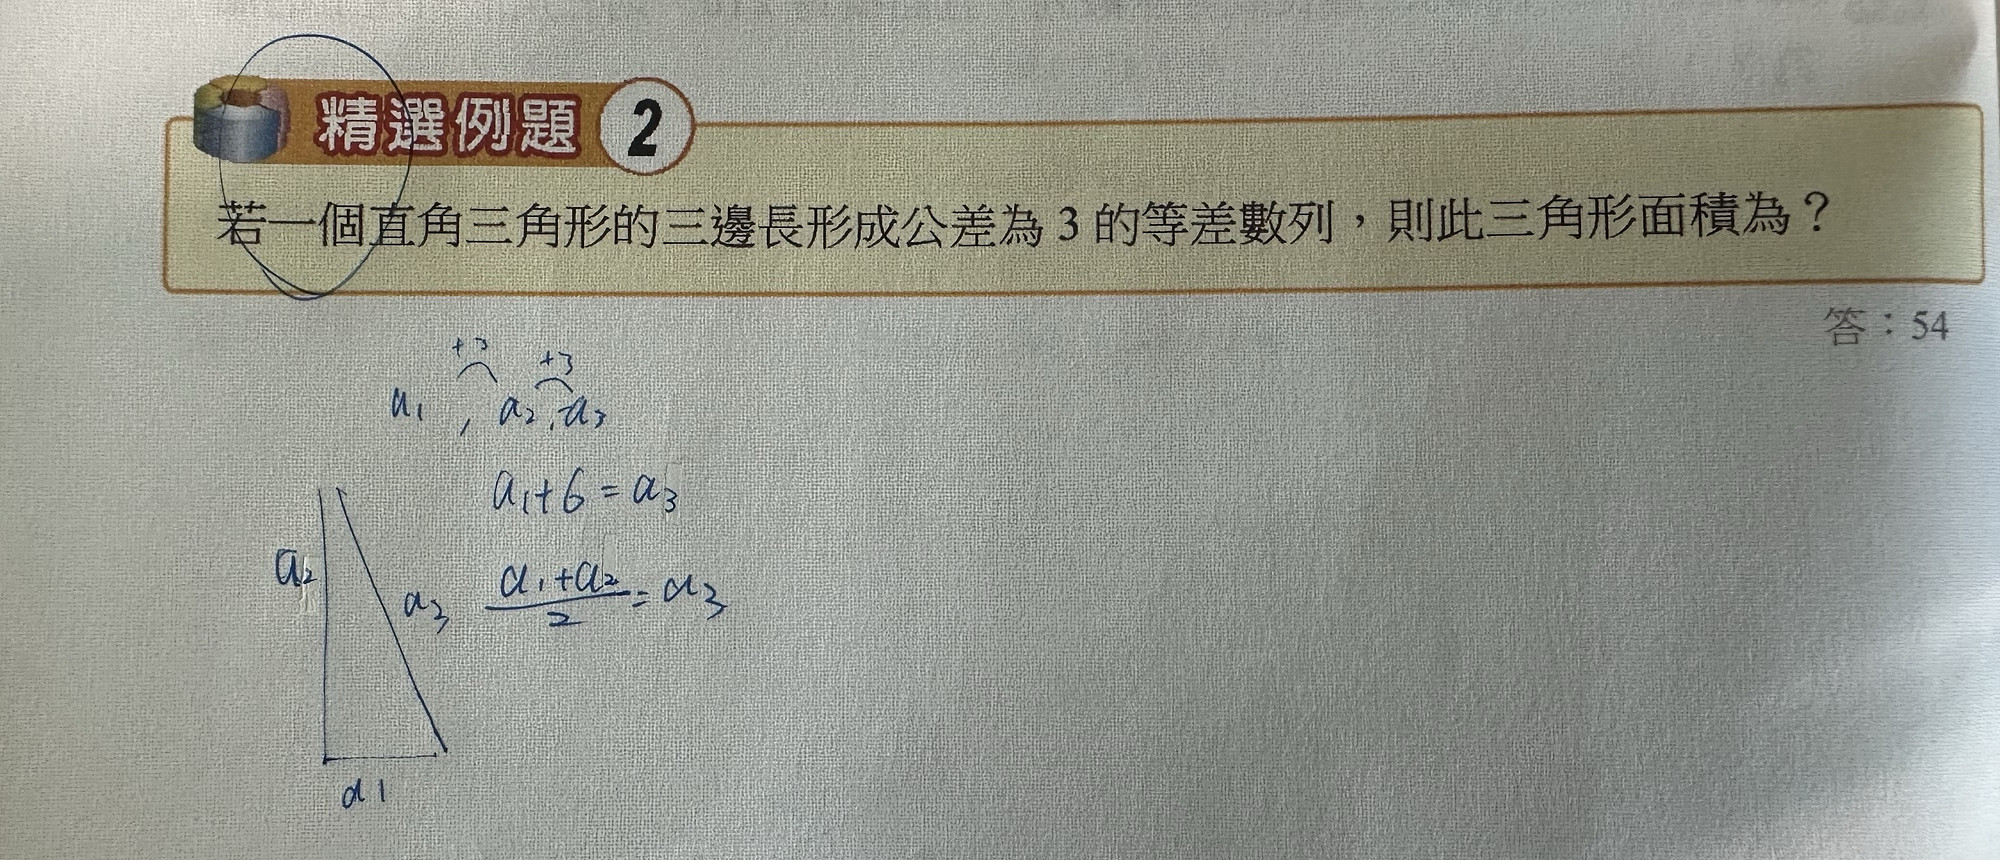 精選例題 2
若一個直角三角形的三邊長形成公差為 3 的等差數列，則此三角形面積為？
答：54
+3 +3
a₁ , a₂ , a₃
a₁+6=a₃
a₂
a₃
(a₁+a₂)/2=a₃
a1